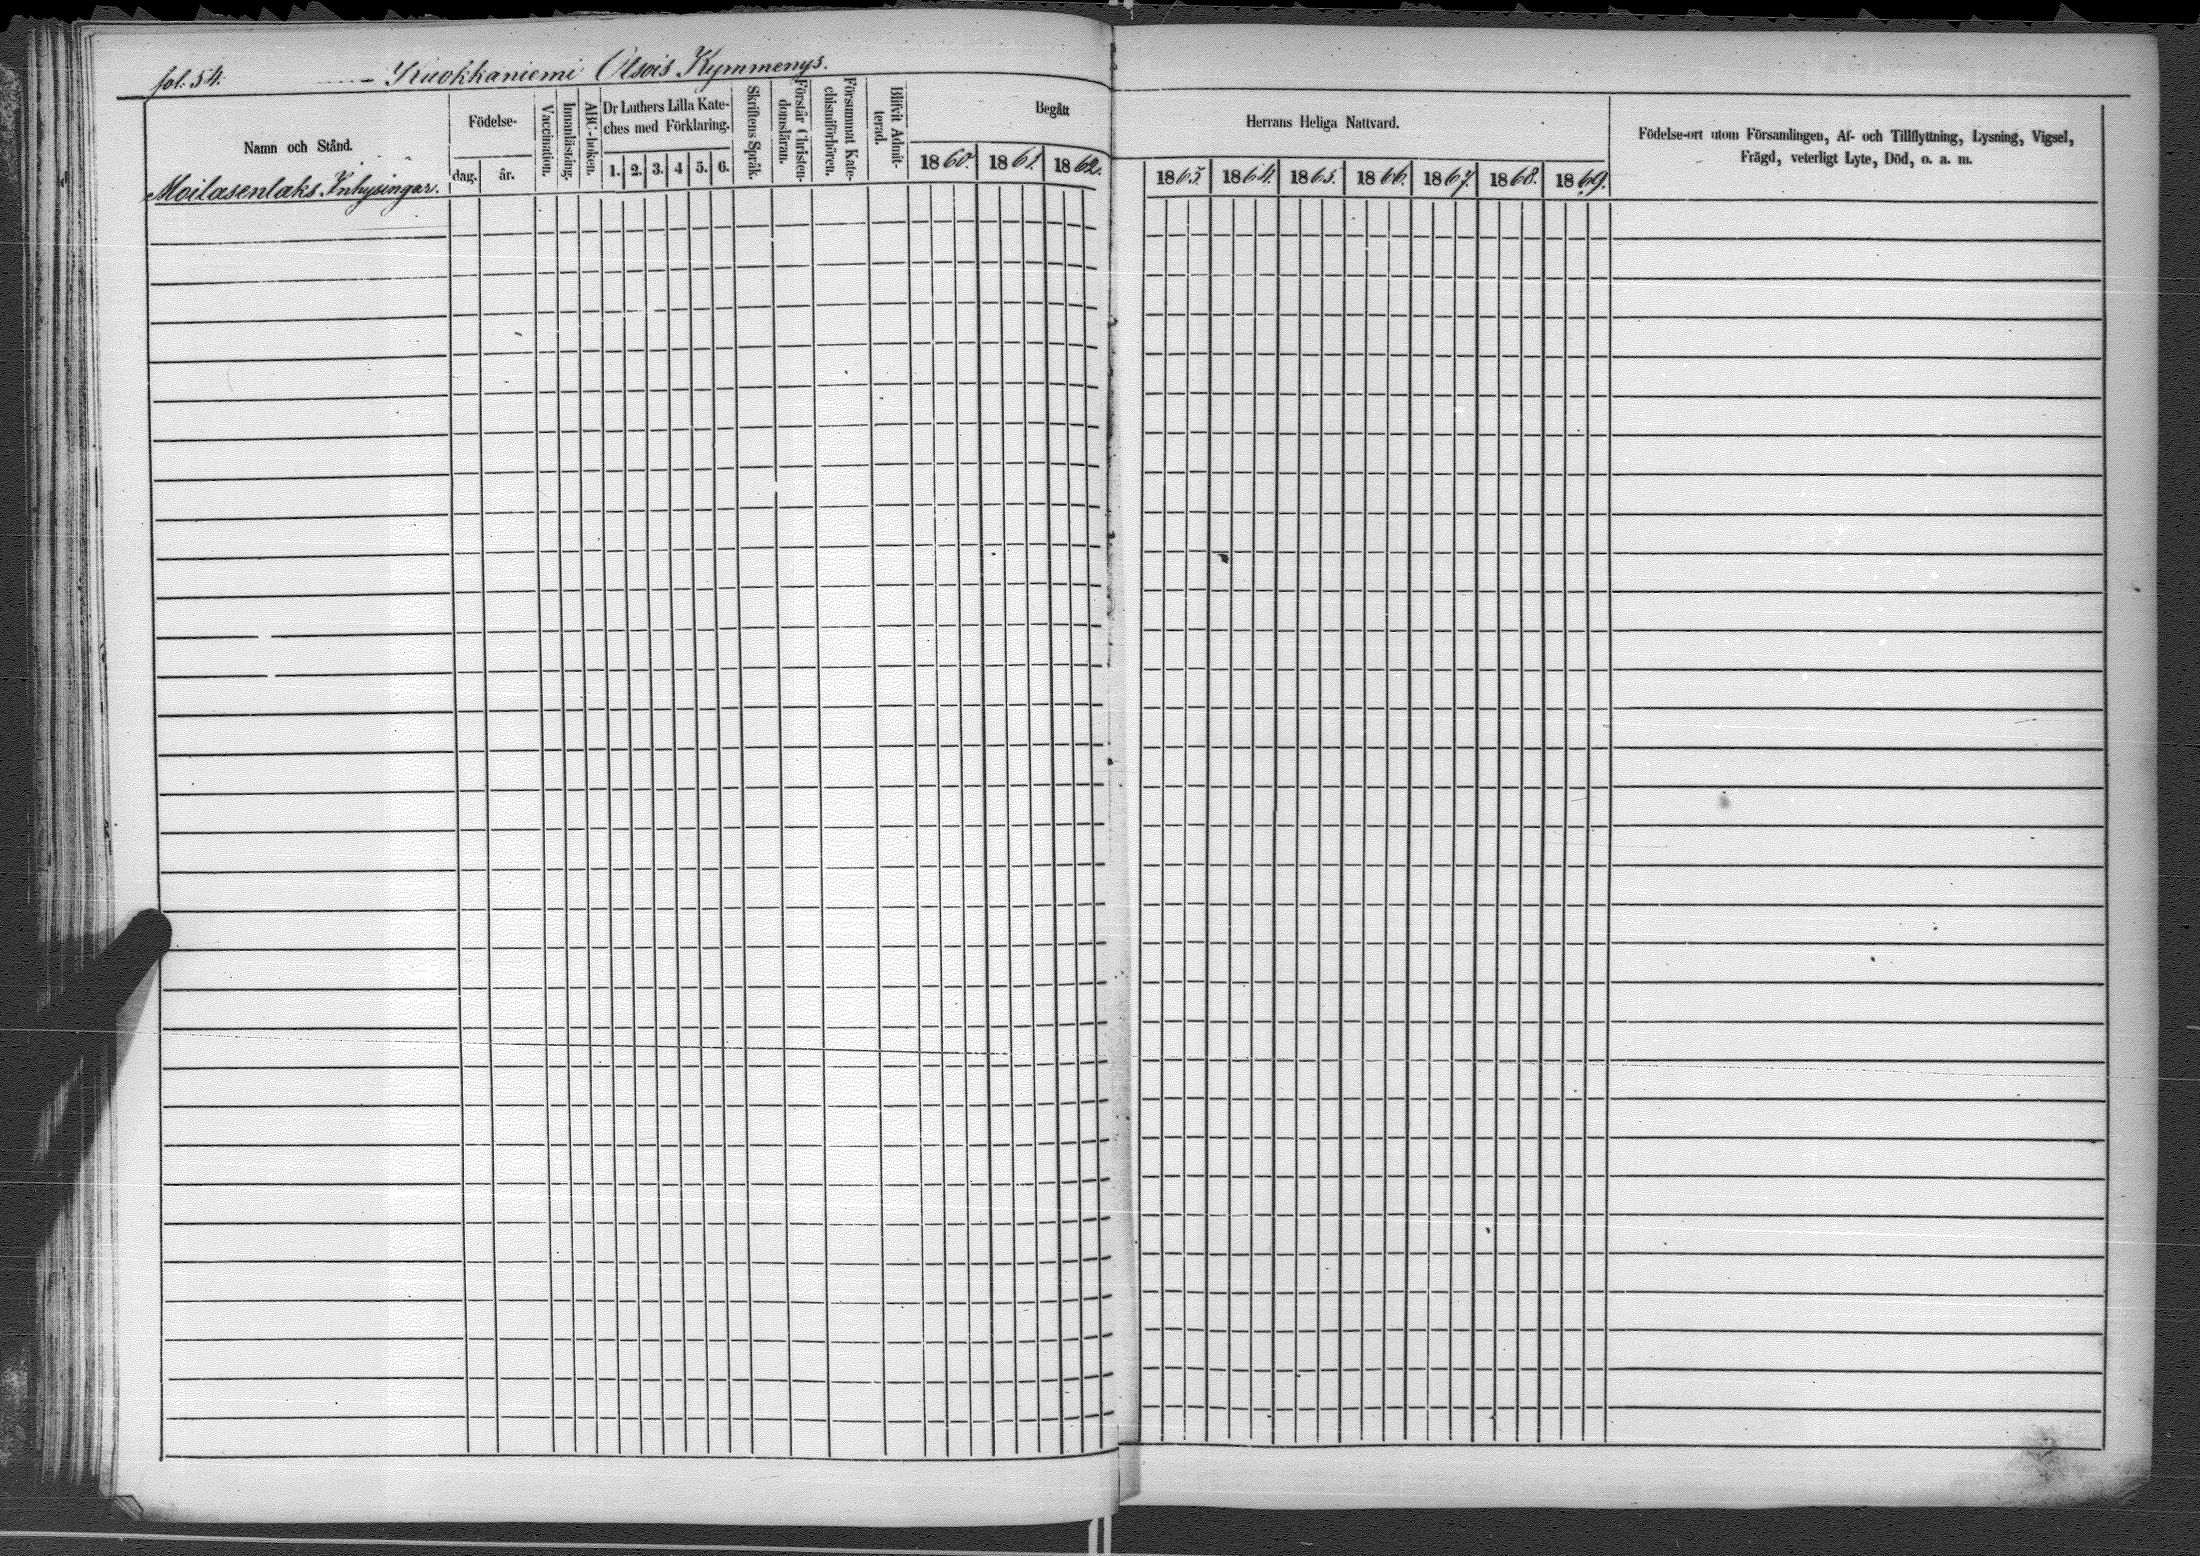 fol. 54. Kuokkaniemi Olsois Kymmenys.
Namn och Stånd.
Födelse-
dag. år.
Vaccination.
Innanläsning.
ABC-boken.
Dr Luthers Lilla Kate-
ches med Förklaring.
1. 2. 3. 4 5. 6.
Skriftens Språk.
Förstår Christen-
domsläran.
Försummat Kate-
chismiförhören.
Blifvit Admit-
terad.
Begått
1860. 1861. 1862.
Herrans Heliga Nattvard.
1863. 1864. 1865. 1866. 1867. 1868. 1869.
Födelse-ort utom Församlingen, Af- och Tillflyttning, Lysning, Vigsel,
Frägd, veterligt Lyte, Död, o. a. m.
Moilasenlaks. Inhysingar.